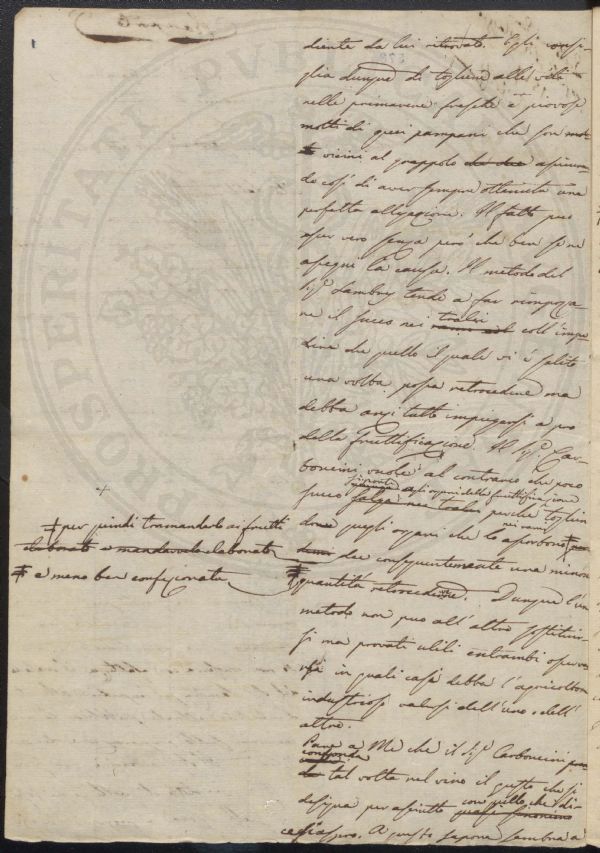 diente da lui ritrovato. Egli consi-
glia dunque di togliere alle viti
nelle primavere fresche e piovose
molti di quei pampani che son
vicini al grappolo assicuran-
do così di aver sempre ottenuta una
perfetta allegagione. Il fatto può
esser vero senza però che ben se ne
assegni la causa. Il metodo del
Sigr Lambry tende a far ringorga-
re il succo nei tralci coll'impe-
dire che quello il quale vi è salito
una volta possa retrocedere ma
debba anzi tutto impiegarsi a pro
della fruttificazione. Il Sigr Car-
boncini vuole al contrario che poco
succo agli organi della fruttificazione
perche toglien
do quegli organi che lo assorbono nei rami
dee conseguentemente una minor
quantità retrocedere. Dunque l'un
metodo non può all'altro sostituir-
si ma provati utili entrambi
in quali casi debba l'agricoltore
industrioso valersi dell'uno o dell'
altro.
Pare a Me che il Sigr Carboncini
confonda
tal volta nel vino il gusto che si
disegna per asciutto con quello che di-
cesi aspro. A questo sapore sembra a
+
per quindi tramandarlo ai frutti
elaborato e mandarvelo elaborato
e meno ben confezionato
PUBLICAE
PROSPERITATI